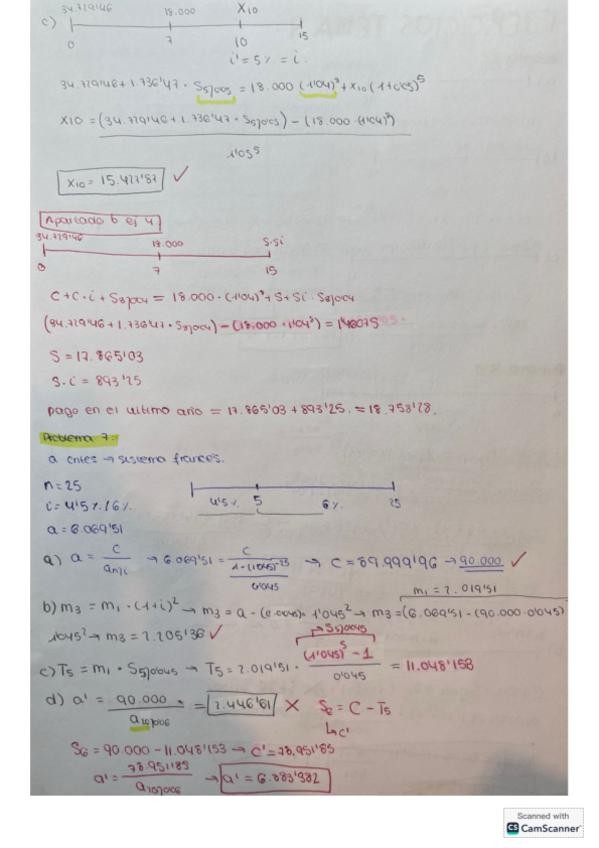 34.729'46 18.000 X10
c)
0 7 10 15
i' = 5% = i.
34.729'46 + 1.736'47 · S5)005 = 18.000 (1'04)³ + X10 (1+005)⁵
X10 = (34.729'46 + 1.736'47 · S5)005) - (18.000 · (1'04)³)
1'05⁵
X10 = 15.427'87 ✓
Apartado b ej 4
34.729'46 18.000 S.Si
0 7 15
C + C · i + S8)004 = 18.000 · (1'04)³ + S + Si · S8)004
(34.729'46 + 1.736'47 · S8)004) - (18.000 · 1'04³) =
S = 17.865'03
S · i = 893'25
pago en el ultimo año = 17.865'03 + 893'25. = 18.758'28.
Problema 7:
a cntes → sistema frances.
n = 25
i = 4'5% / 6%
4'5% 5 6% 25
a = 6.069'51
a) a = C / an)i → 6.069'51 = C / 1-(1'045)⁻²⁵ / 0'045 → C = 89.999'96 → 90.000 ✓
m1 = 2.019'51
b) m3 = m1 · (1+i)² → m3 = a - (0.0045) · 1'045² → m3 = (6.069'51 - (90.000 · 0'045)
1'045² → m3 = 2.205'36 ✓
→ S5)0045
c) T5 = m1 · S5)0'045 → T5 = 2.019'51 · (1'045)⁵ - 1 / 0'045 = 11.048'158
d) a' = 90.000 / a20)006 = 7.446'61 ✗ S6 = C - T5
↳ C'
S6 = 90.000 - 11.048'153 → C' = 78.951'85
a' = 78.951'85 / a20)006 → a' = 6.883'382
Scanned with
CS CamScanner